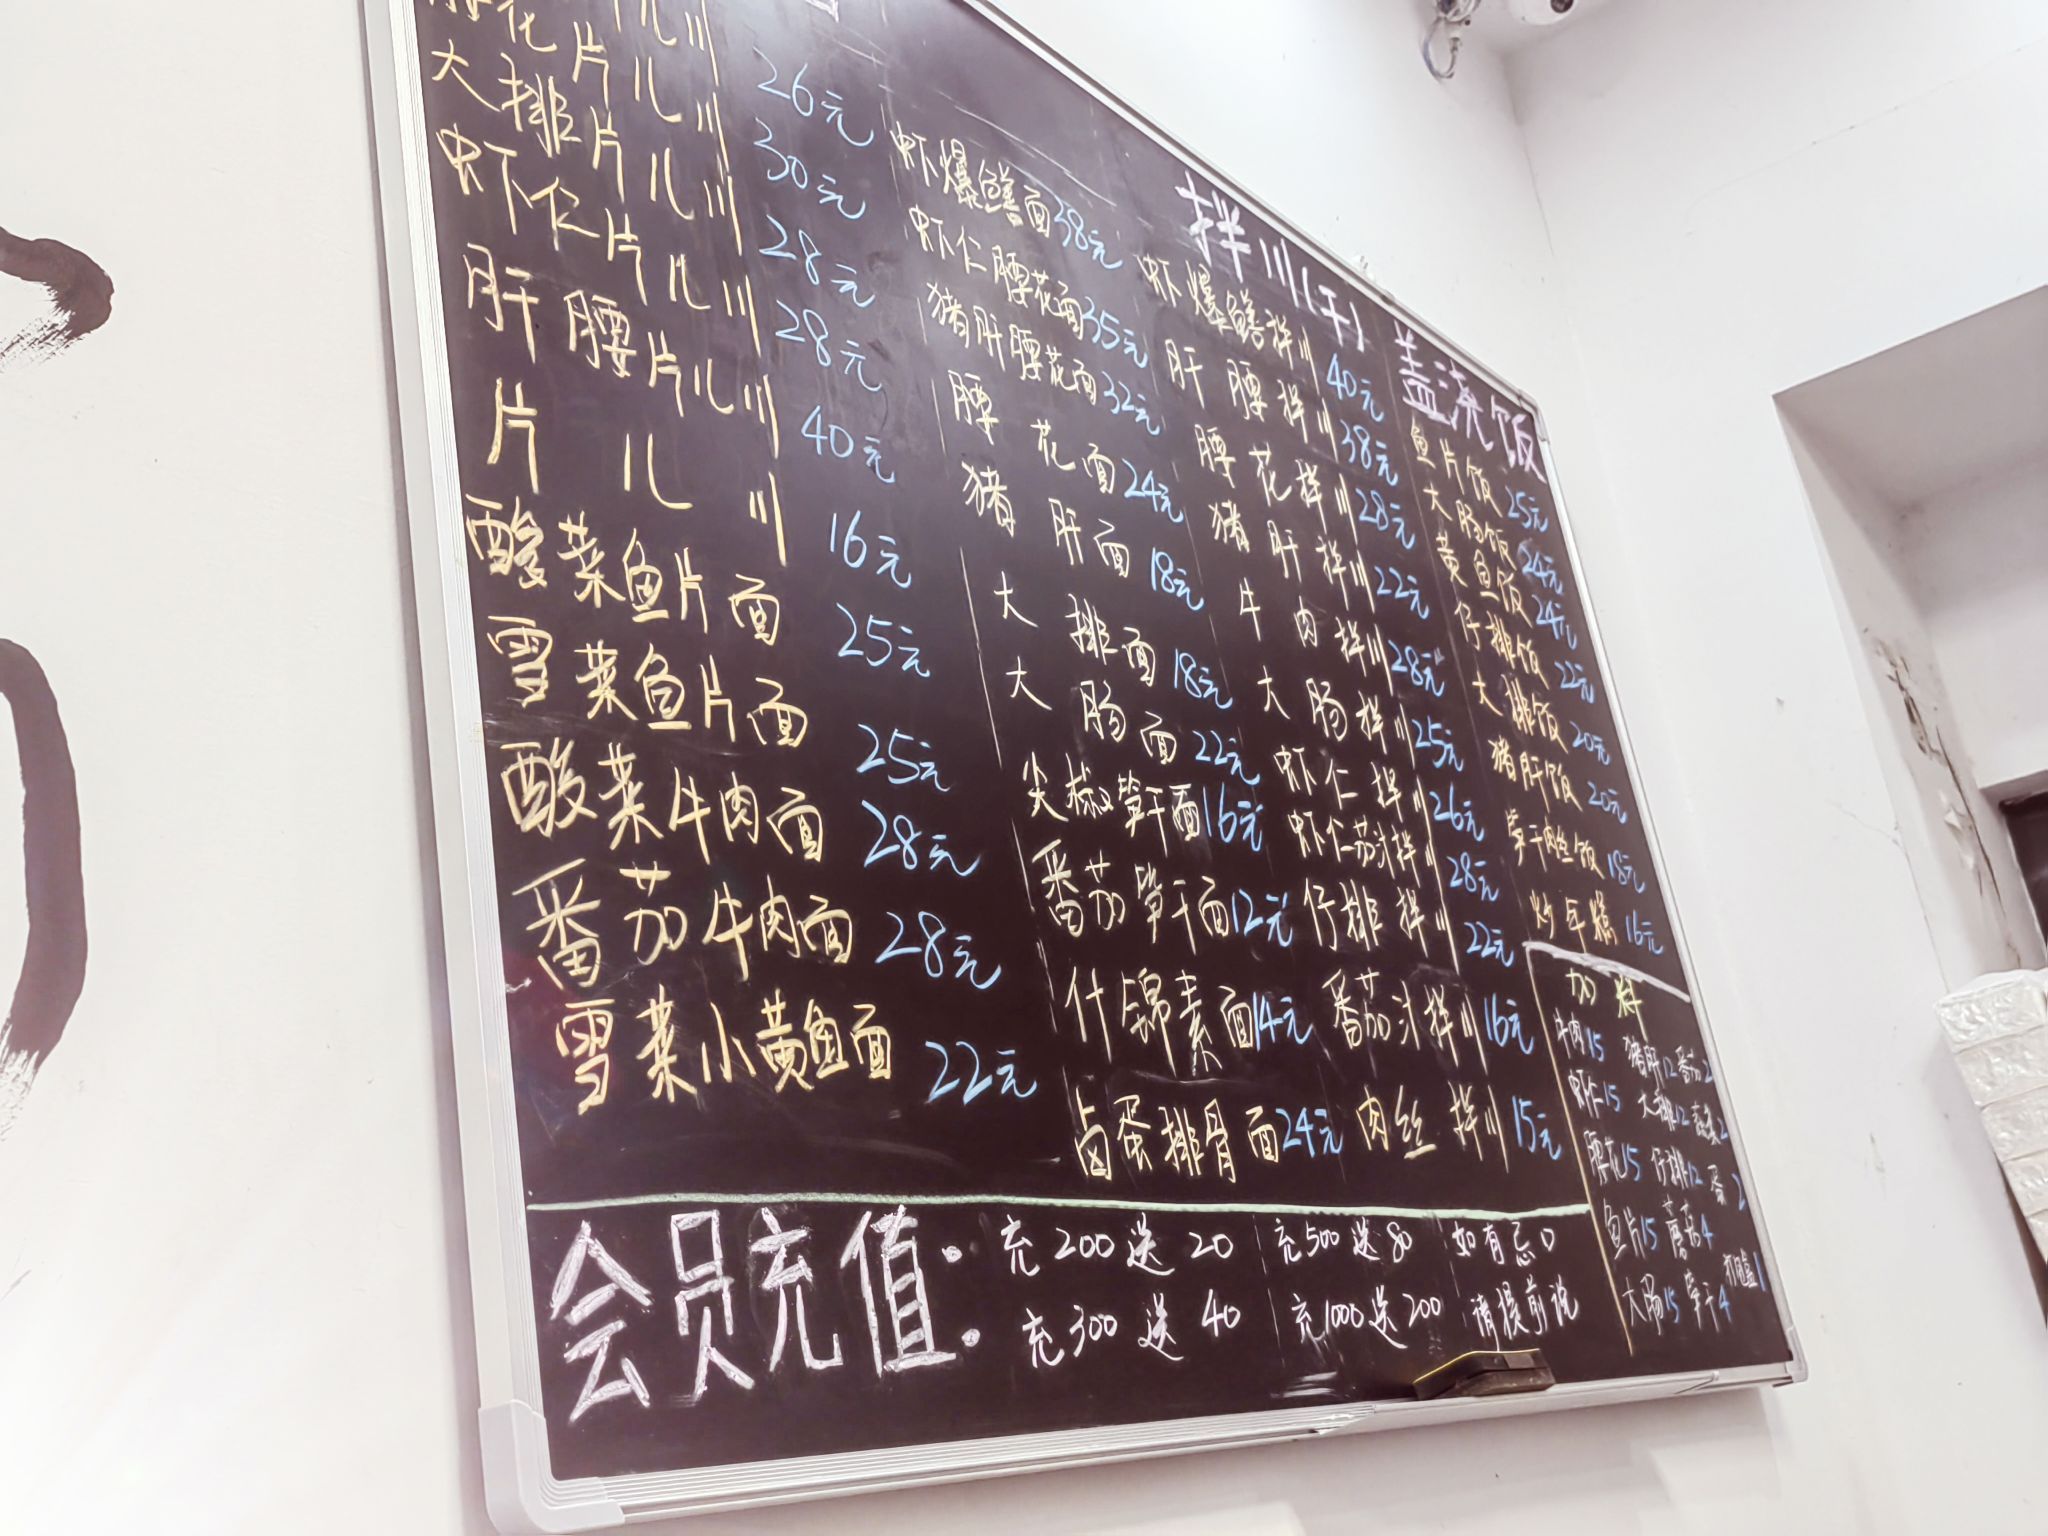 26元
花片儿川 30元
大排片儿川 28元
虾仁片儿川 28元
肝腰片儿川 40元
片儿川 16元
酸菜鱼片面 25元
雪菜鱼片面 25元
酸菜牛肉面 28元
番茄牛肉面 28元
雪菜小黄鱼面 22元
虾爆鳝面38元
虾仁腰花面35元
猪肝腰花面32元
腰花面24元
猪肝面18元
大排面18元
大肠面22元
尖椒笋干面16元
番茄笋干面12元
什锦素面14元
卤蛋排骨面24元
拌川(干)
虾爆鳝拌川40元
肝腰拌川38元
腰花拌川28元
猪肝拌川22元
牛肉拌川28元
大肠拌川25元
虾仁拌川26元
虾仁茄汁拌川28元
仔排拌川22元
番茄汁拌川16元
肉丝拌川15元
盖浇饭
鱼片饭25元
大肠饭24元
黄鱼饭24元
仔排饭22元
大排饭20元
猪肝饭20元
笋干肉丝饭18元
炒年糕16元
加料
牛肉15 猪肝12 番茄2
虾仁15 大排12 2
腰花15 仔排12 蛋2
鱼片15 蘑菇4
大肠15 笋干4 打包盒1
会员充值:
充200送20 充500送80
充300送40 充1000送200
如有忌口
请提前说